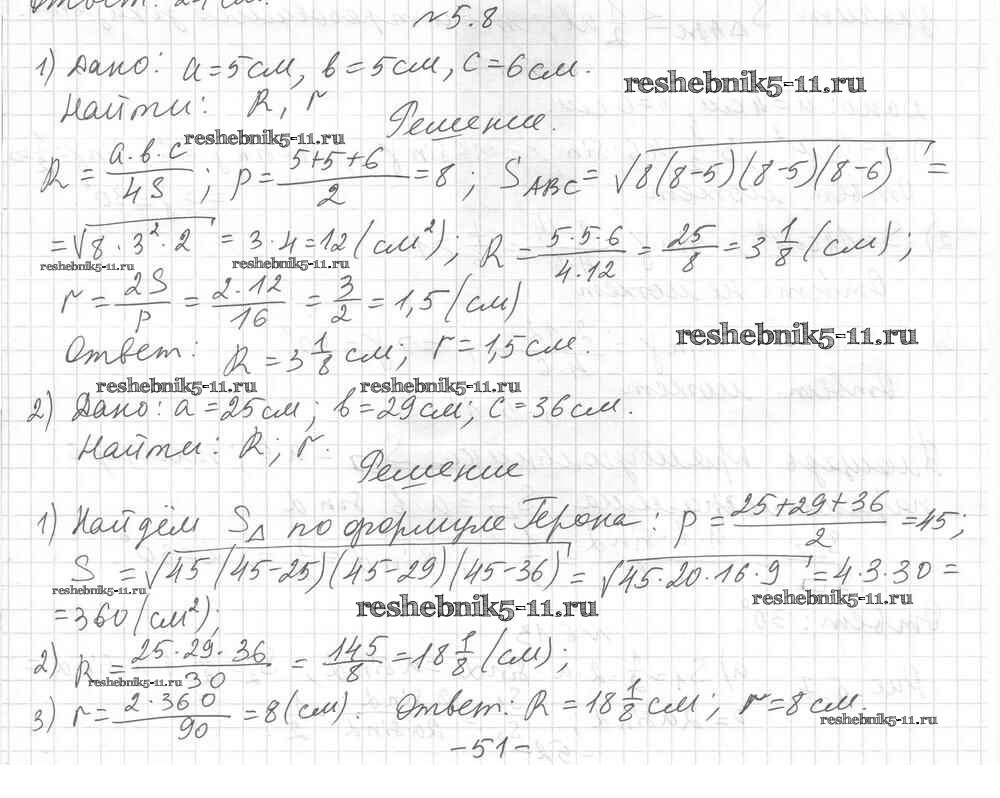 Ответ: 24 см.
№5.8
1) Дано: a=5см, b=5см, c=6см.
reshebnik5-11.ru
Найти: R, r
reshebnik5-11.ru
Решение.
R = a·b·c/4S; p = 5+5+6/2 = 8; S ABC = √8(8-5)(8-5)(8-6) =
= √8·3²·2 = 3·4=12(см²); R = 5·5·6/4·12 = 25/8 = 3 1/8 (см);
reshebnik5-11.ru reshebnik5-11.ru
r = 2S/p = 2·12/16 = 3/2 = 1,5(см)
reshebnik5-11.ru
Ответ: R = 3 1/8 см; r = 1,5см.
reshebnik5-11.ru reshebnik5-11.ru
2) Дано: a=25см; b=29см; c=36см.
Найти: R; r.
Решение
1) Найдём S△ по формуле Герона: p = 25+29+36/2 = 45;
S = √45(45-25)(45-29)(45-36) = √45·20·16·9 = 4·3·30 =
reshebnik5-11.ru reshebnik5-11.ru
=360(см²);
reshebnik5-11.ru
2) R = 25·29·36/30 = 145/8 = 18 1/8 (см);
reshebnik5-11.ru
3) r = 2·360/90 = 8(см). Ответ: R = 18 1/8 см; r=8см.
reshebnik5-11.ru
-51-